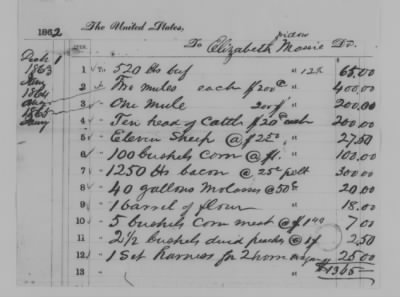 1862 The United States,
widow
To Elizabeth Massie Dr.
Dech 1
1863
1864
Aug
1865
ITEM.
1 " To 520 lbs beef " 12½ 65.00
2 " Two mules each $200 " 400.00
3 " One mule 200 " 200.00
4 " Ten head of Cattle $20 each 200.00
5 " Eleven Sheep @ $2.50 " 27.50
6 " 100 bushels Corn @ $1. " 100.00
7 " 1250 lbs bacon @ 25c 300.00
8 " 40 gallons Molasses @ 50c " 20.00
9 " 1 barrel of flour " 18.00
10 " 5 bushels Corn meal @ $1.40 " 7.00
11 " 2½ bushels dried peaches @ 1$ " 2.50
12 " 1 Set harness for 2 horse 25.00
13 $1365—